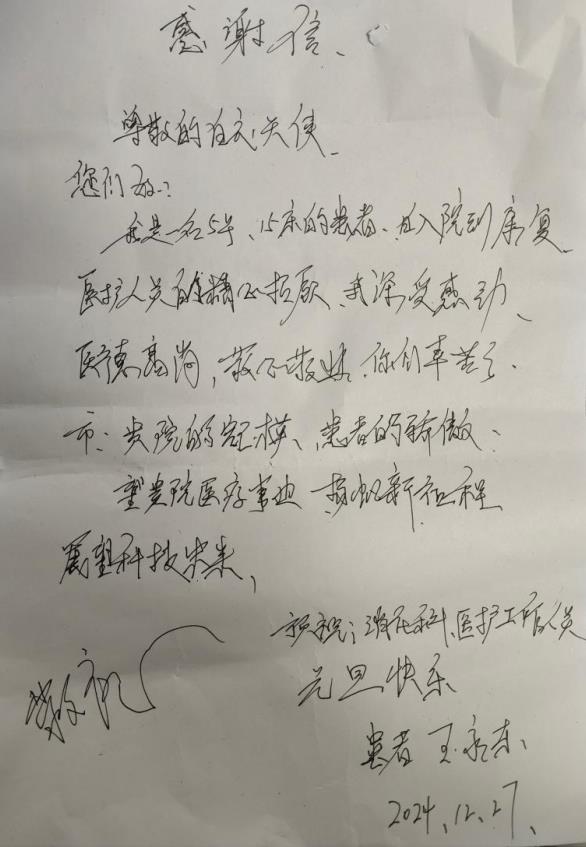 感谢信、
尊敬的白衣天使
您们好：
我是一名5号、15床的患者、自入院到康复
医护人员的精心照顾、我深受感动、
医德高尚，敬心敬业、你们辛苦了、
市：贵院的楷模、患者的骄傲、
望贵院医疗事业 扬帆新征程
展望科技未来、
祝：消化科、医护工作人员
元旦快乐
敬礼
患者 王永东、
2024.12.27.